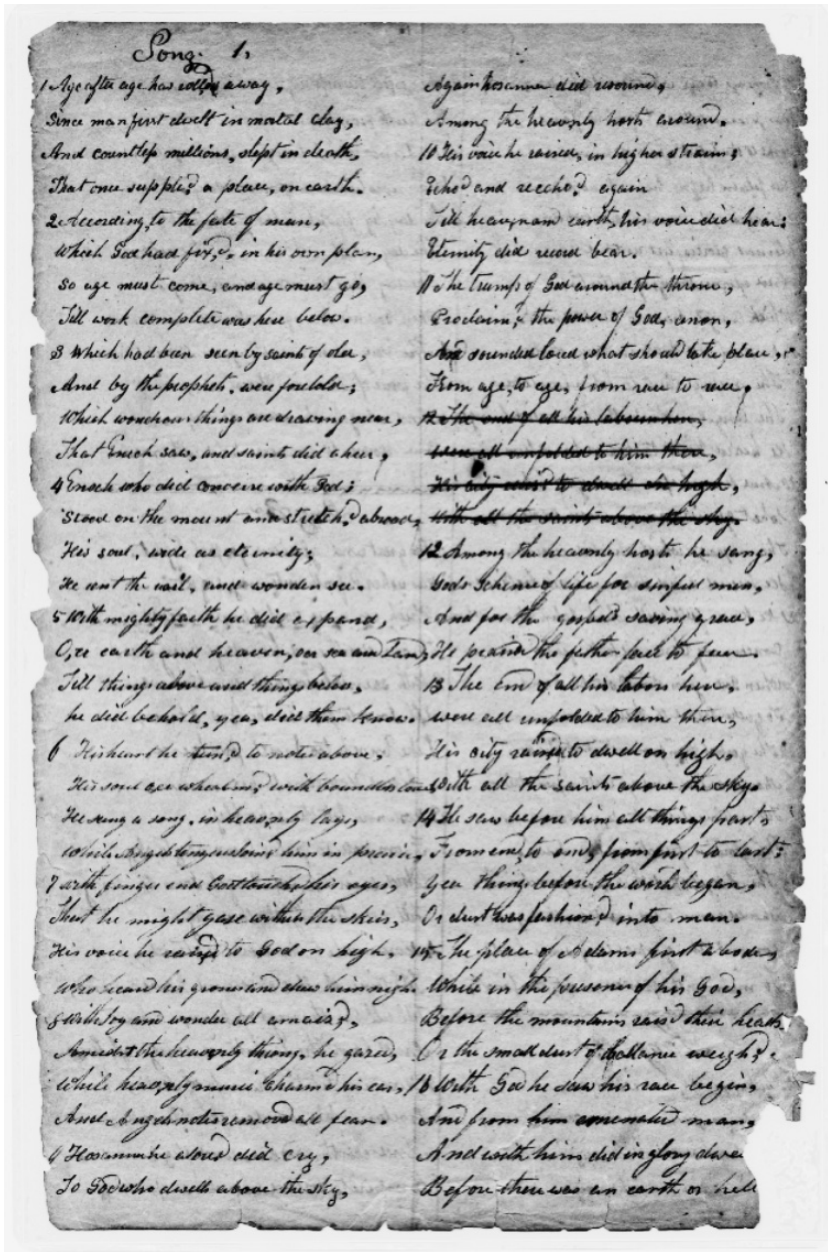 Song. 1,
1 Age after age has rolled away,
Since man first dwelt in mortal clay,
And countless millions, slept in death,
That once suppli,d a place, on earth.
2 According, to the fate of man,
Which God had fix,d, in his own plan,
So age must come, and age must go,
Till work complete was here below.
3 Which had been seen by saints of old,
And by the prophets, were foretold;
Which wondrous things are drawing near,
That Enoch saw, and saints did hear,
4 Enoch who did converse with God;
Stood on the mount and stretch,d abroad,
His soul, wide as eternity;
He rent the vail, and wonders see.
5 With mighty faith he did expand,
O,re earth and heaven, oer sea and land,
Till things above and things below,
he did behold, yea, did them know.
6 His heart he tun,d to notes above;
His soul oer whealm,d with boundless love
He sung a song, in heavenly lays,
While Angels tongues join,d him in praise,
7 with finger end God touch,d his eyes,
That he might gase within the skies,
His voice he rais,d to God on high.
Who heard his groans and drew him nigh.
8 With Joy and wonder all amaized,
Amidst the heavenly throng, he gazed,
While heavenly music Charm,d his ear,
And Angels notes removed all fear.
9 Hosanna he aloud did cry,
To God who dwells above the sky,
Again hosanna did resound,
Among the heavenly hosts around,
10 His voice he raised, in higher strains;
Echo,d and reecho,d again
Till heaven, and earth, his voice did hear:
Eternity did record bear.
11 The trump of God around the throne,
Proclaim,d the power of God, anon,
And sounded loud what should take place,
From age, to age, from race to race,
12 The end of all his labours here,
were all unfolded to him there,
His city rais'd to dwell on high,
With all the saints above the sky.
12 Among the heavenly hosts he sang,
Gods Scheme of life for sinful man,
And for the gospels saving grace,
He prais'd the father face to face.
13 The end of all his labors here,
were all unfolded to him there,
His city rais,d to dwell on high,
With all the saints above the sky.
14 He saw before him all things past,
From end, to end, from first to last;
Yea things before the world began,
Or dust was fashion,d into man.
15 The place of Adams first abode,
While in the presence of his God,
Before the mountains rais'd their heads
Or the small dust of ballance weigh,d.
16 With God he saw his race begin,
And from him emenated man,
And with him did in glory dwe
Before there was an earth or hell